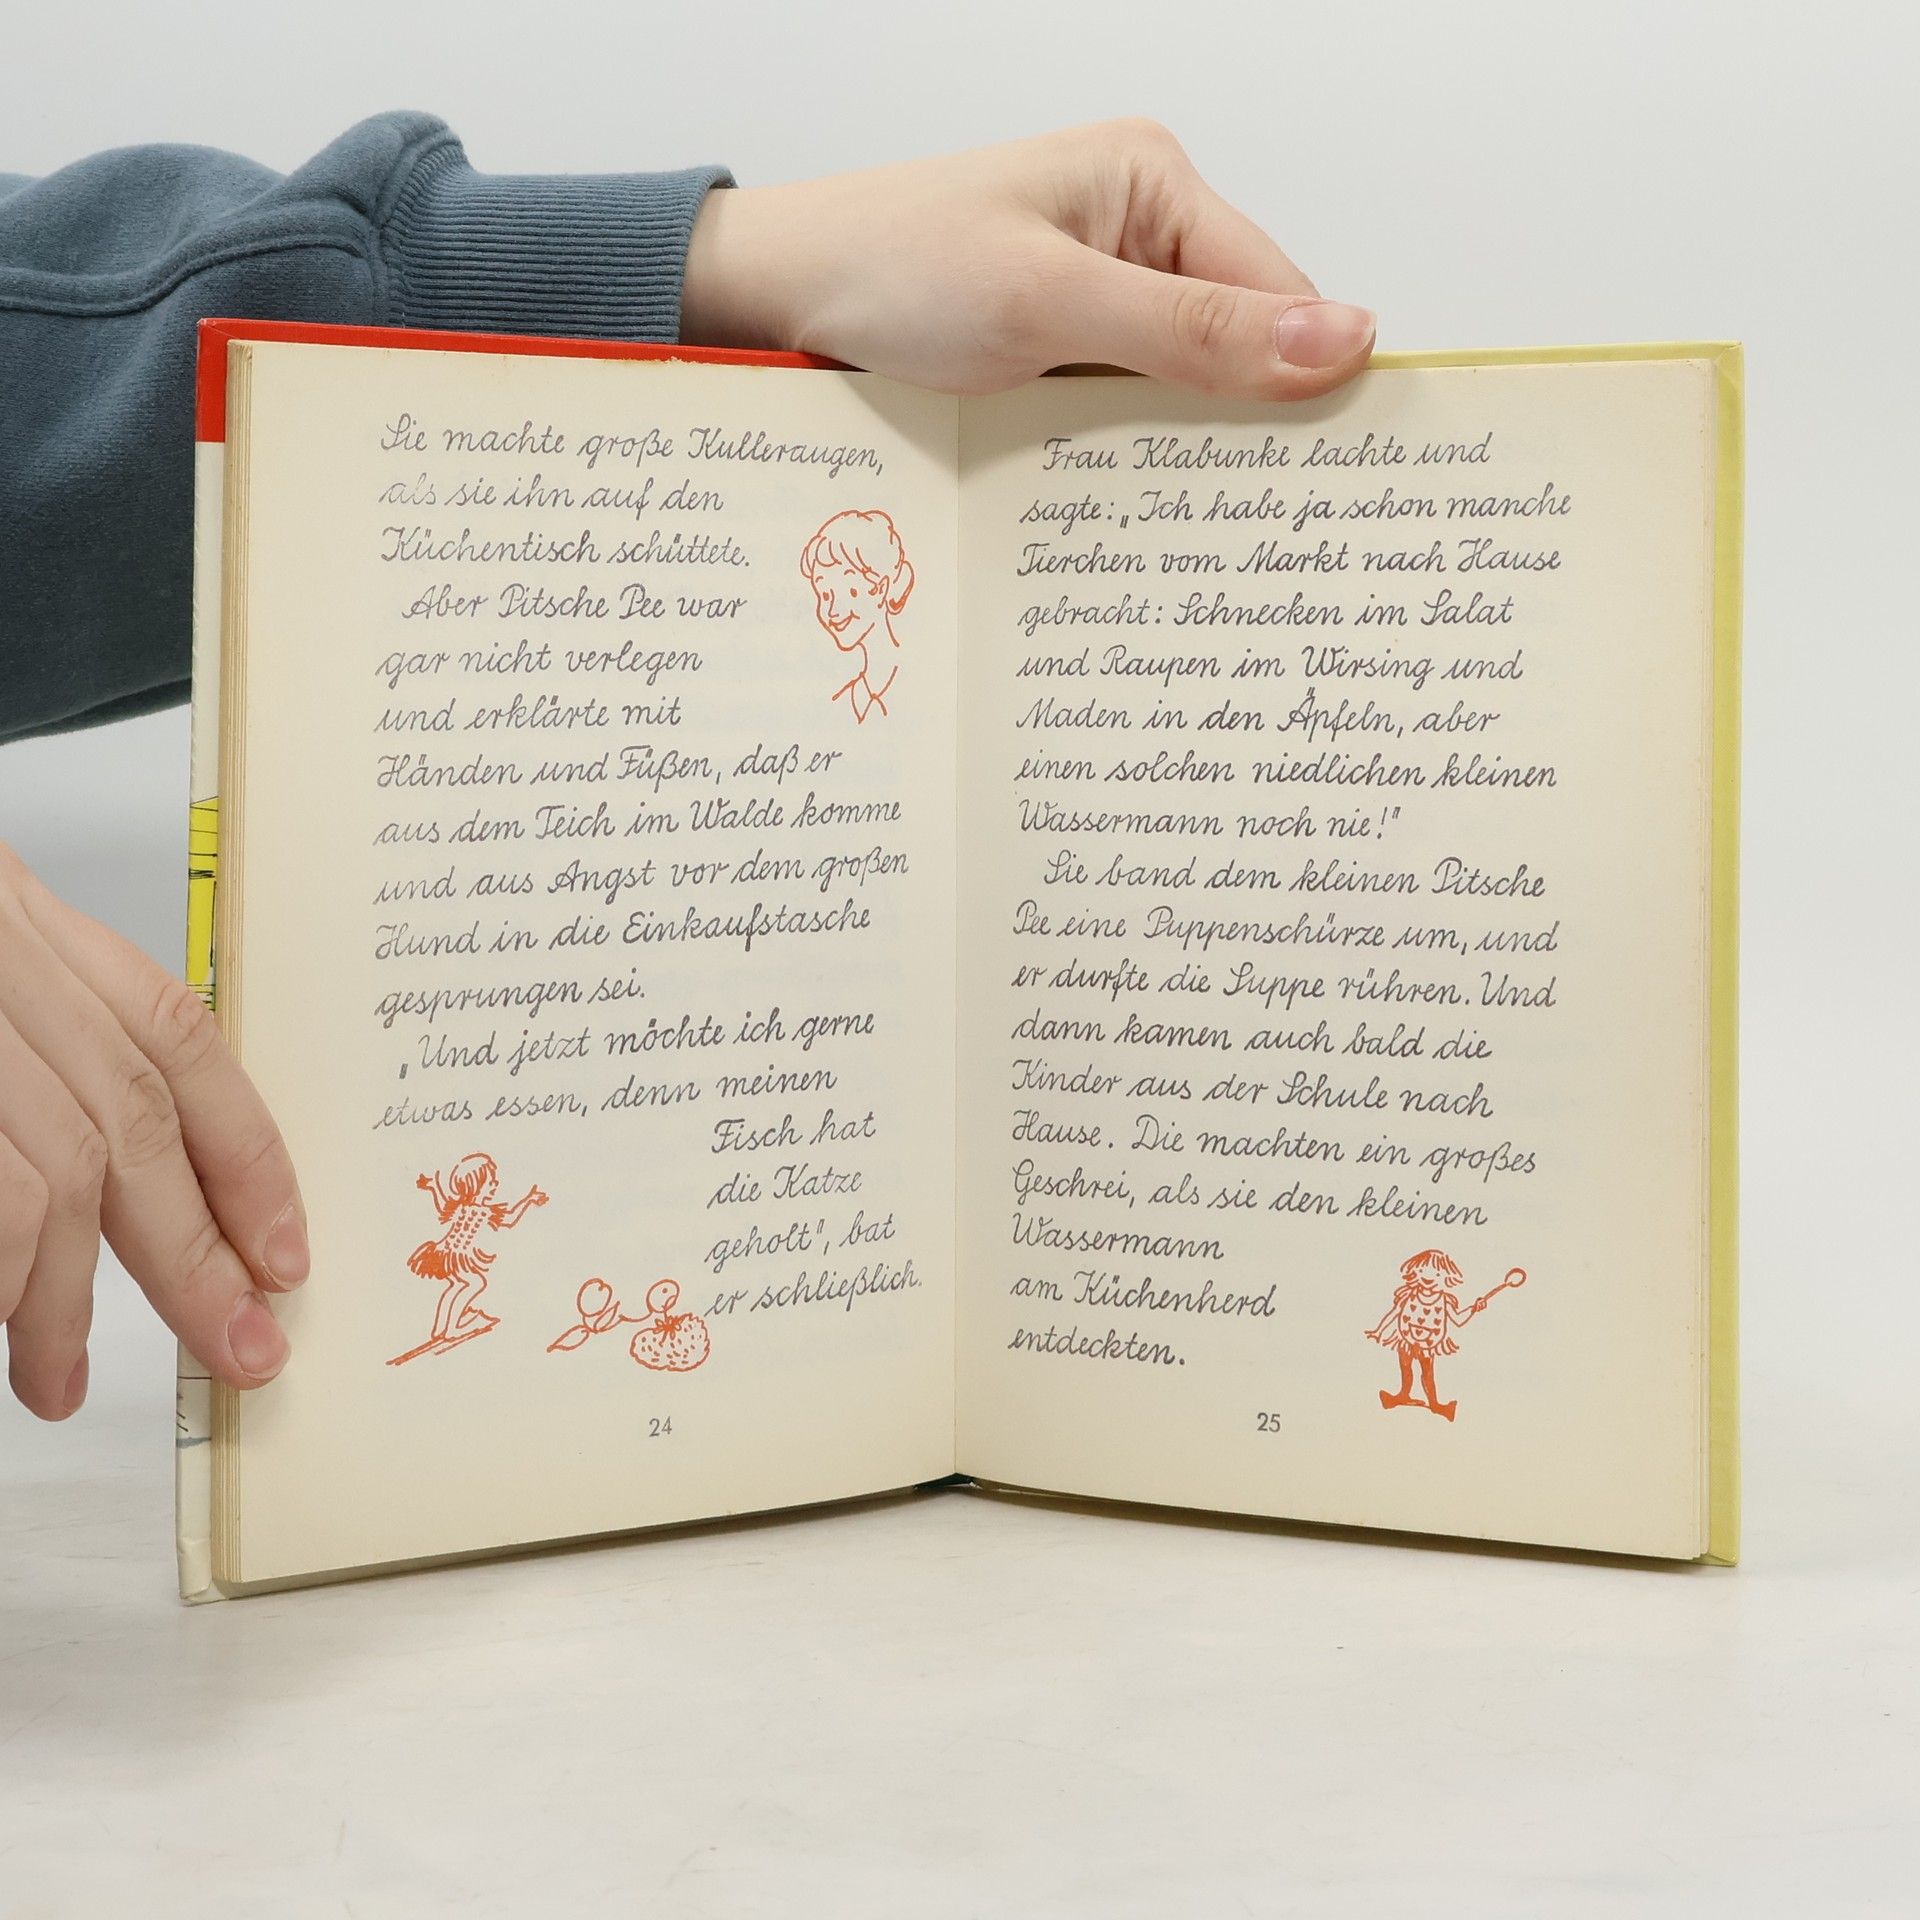 Sie machte große Kulleraugen,
als sie ihn auf den
Küchentisch schüttete.
Aber Pitsche Pee war
gar nicht verlegen
und erklärte mit
Händen und Füßen, daß er
aus dem Teich im Walde komme
und aus Angst vor dem großen
Hund in die Einkaufstasche
gesprungen sei.
„Und jetzt möchte ich gerne
etwas essen, denn meinen
Fisch hat
die Katze
geholt", bat
er schließlich.
24
Frau Klabunke lachte und
sagte: „Ich habe ja schon manche
Tierchen vom Markt nach Hause
gebracht: Schnecken im Salat
und Raupen im Wirsing und
Maden in den Äpfeln, aber
einen solchen niedlichen kleinen
Wassermann noch nie!"
Sie band dem kleinen Pitsche
Pee eine Puppenschürze um, und
er durfte die Suppe rühren. Und
dann kamen auch bald die
Kinder aus der Schule nach
Hause. Die machten ein großes
Geschrei, als sie den kleinen
Wassermann
am Küchenherd
entdeckten.
25